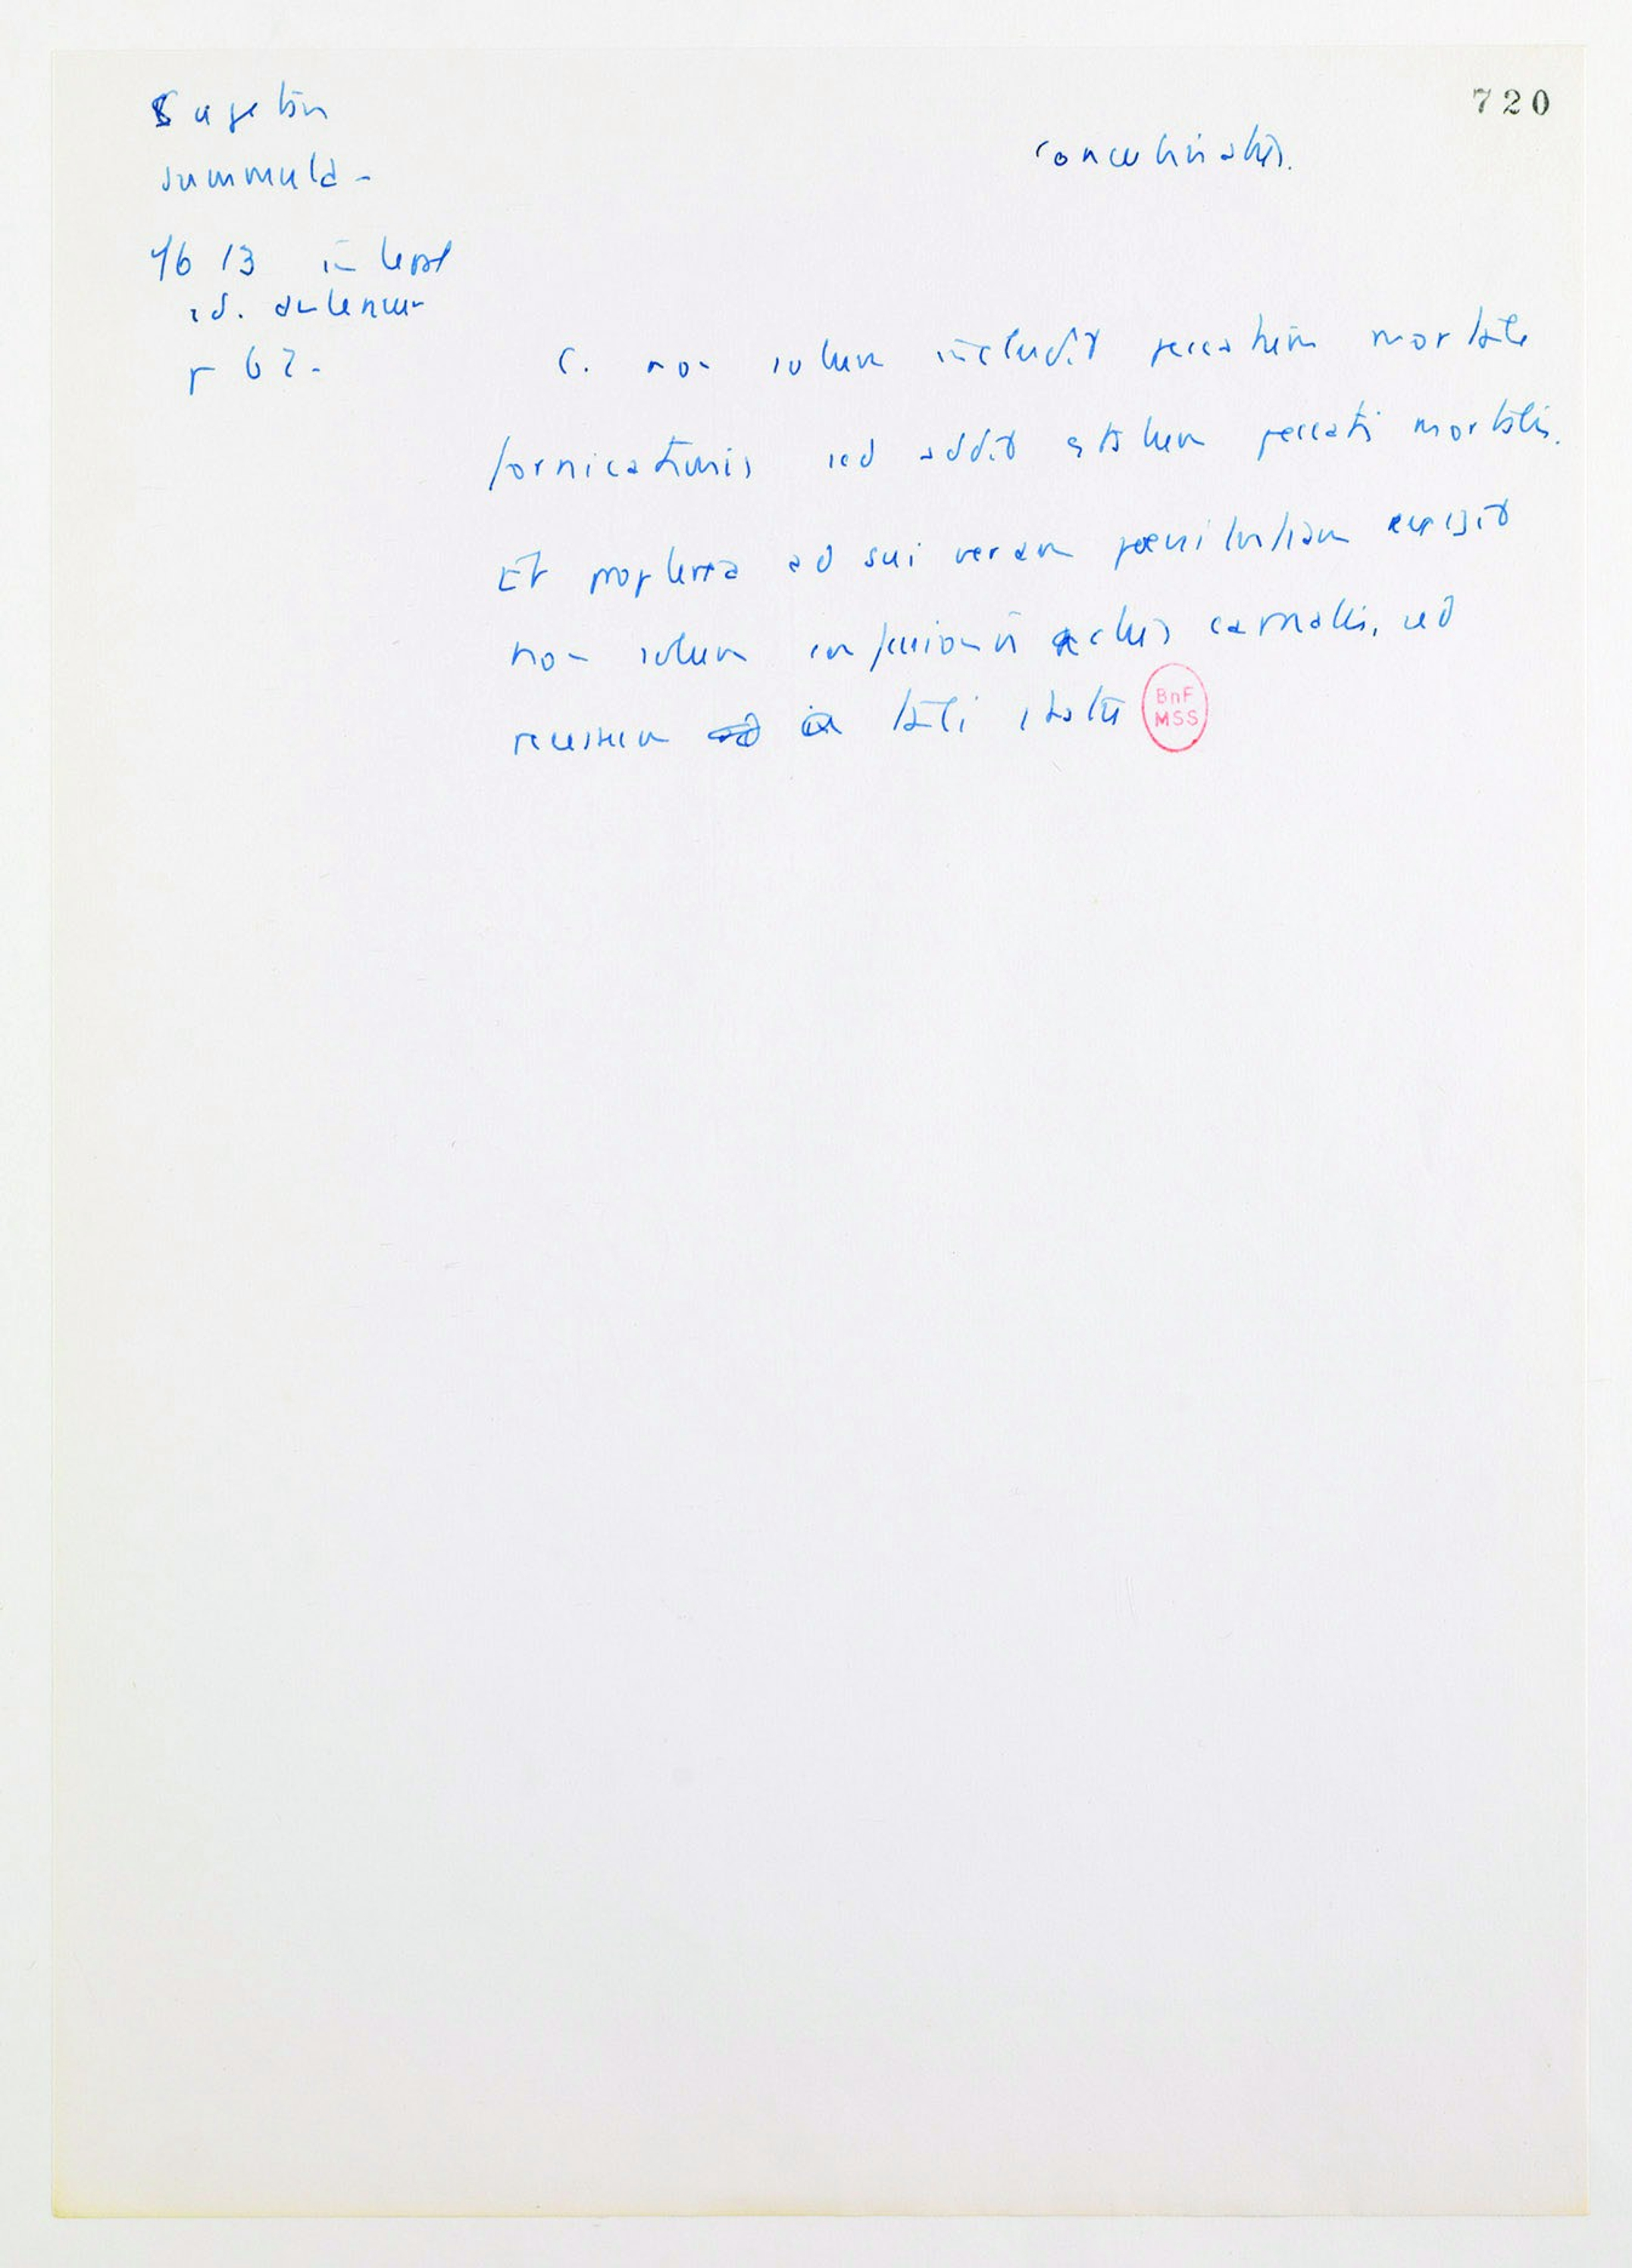 Cajetan
summula -
1613
id.
p 62.
720
concubinatus.
C. non solum includit peccatum mortale
fornicationis sed addit statum peccati mortalis.
Et propterea ad sui veram poenitentiam exigit
non solum actus carnalis, sed
recessum a tali statu
BnF
MSS